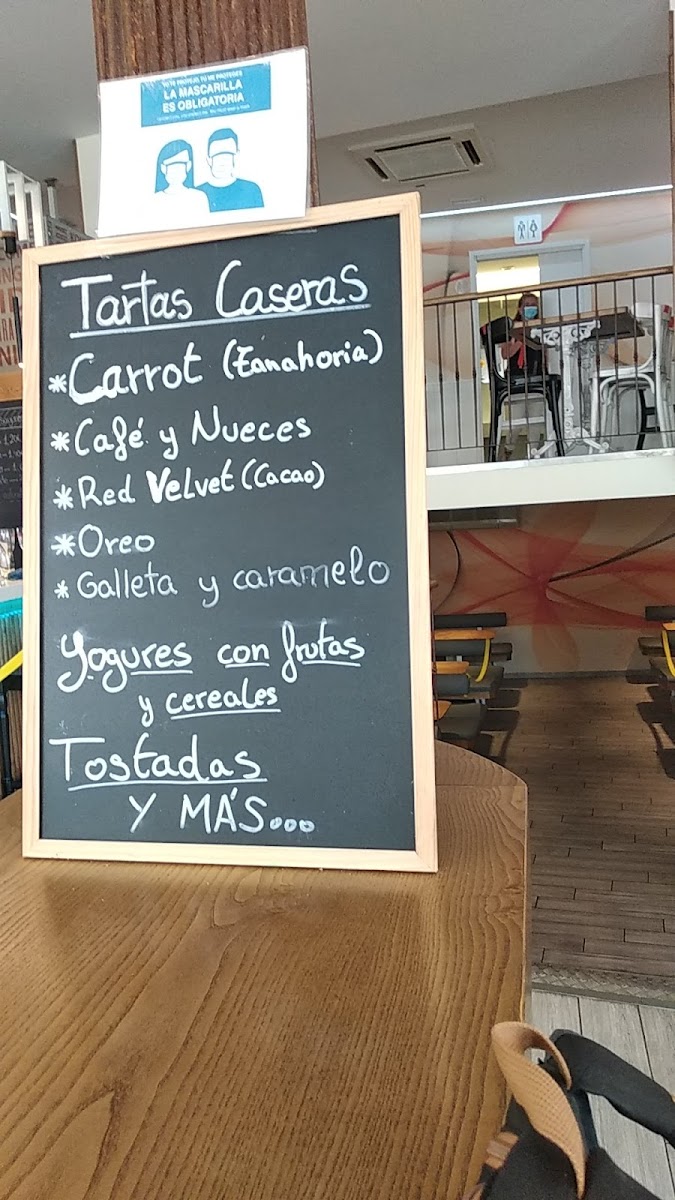 YO TE PROTEJO, TU ME PROTEGES
LA MASCARILLA
ES OBLIGATORIA
Tartas Caseras
*Carrot (Zanahoria)
*Café y Nueces
*Red Velvet (Cacao)
*Oreo
*Galleta y caramelo
Yogures con frutas
y cereales
Tostadas
Y MÁS...